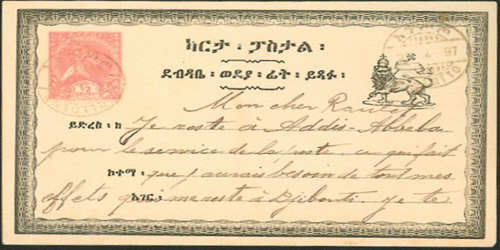 ካርታ፡ ፖስታል፡
ደብዳቤ፡ ወደያ፡ ፊት፡ ይጻፉ፡
97
Mon cher
ይድረስ፡ ከ
Je reste à Addis-Abbeba
pour le service de la poste, ce qui fait
ከተማ፡
que j'aurais besoin de tout mes
አገር፡
effets qui me reste à Djibouti. Je te